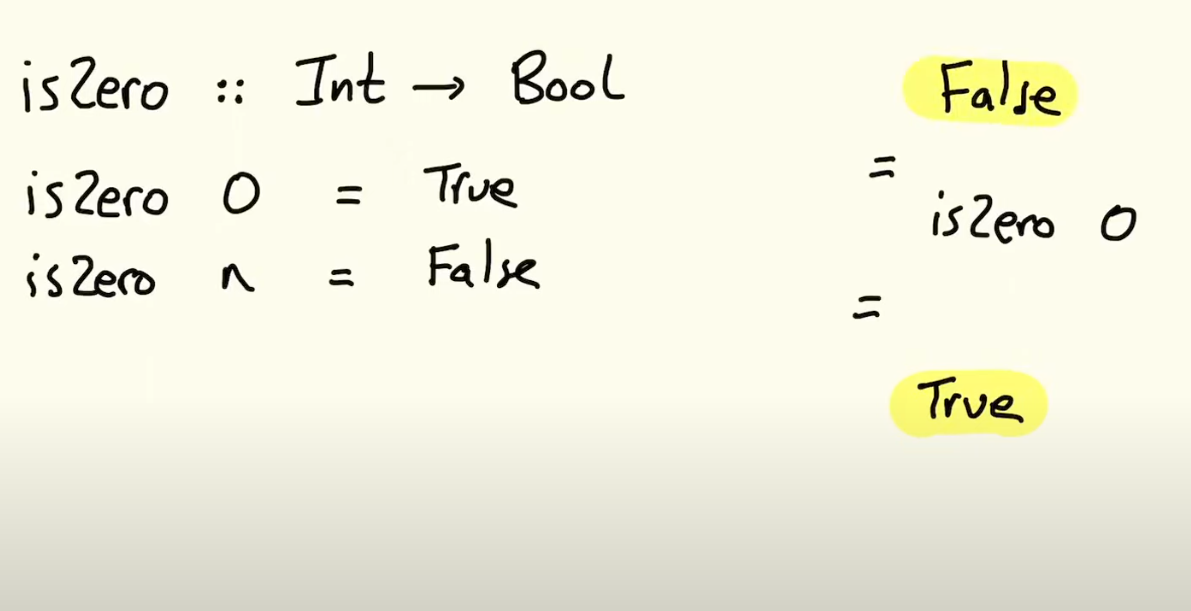 isZero :: Int → Bool
isZero 0 = True
isZero n = False
False
=
isZero 0
=
True